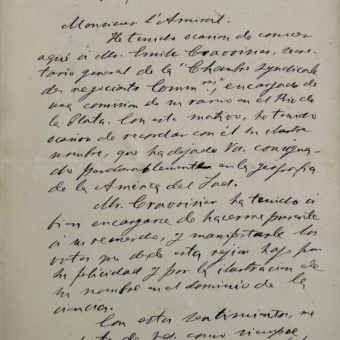 Monsieur l'Amiral:
He tenido ocasion de conocer
aquí á Mr. Emile Cravoisier, secre-
tario general de la "Chambre Syndicale
des negociants Comm.res", encargado de
una comision de su ramo en el Rio de
la Plata. Con este motivo, he tenido
ocasion de recordar con él su ilustre
nombre, que ha dejado Vd. consigna-
do perdurablemente en la geografia
de la América del Sud.
Mr. Cravoisier ha tenido á
bien encargarse de hacerme presente
á su recuerdo, y manifestarle los
votos que desde esta rejion hago por
su felicidad y por la ilustracion de
su nombre en el dominio de la
ciencia.
Con estos sentimientos, me
de Vd. como siempre,